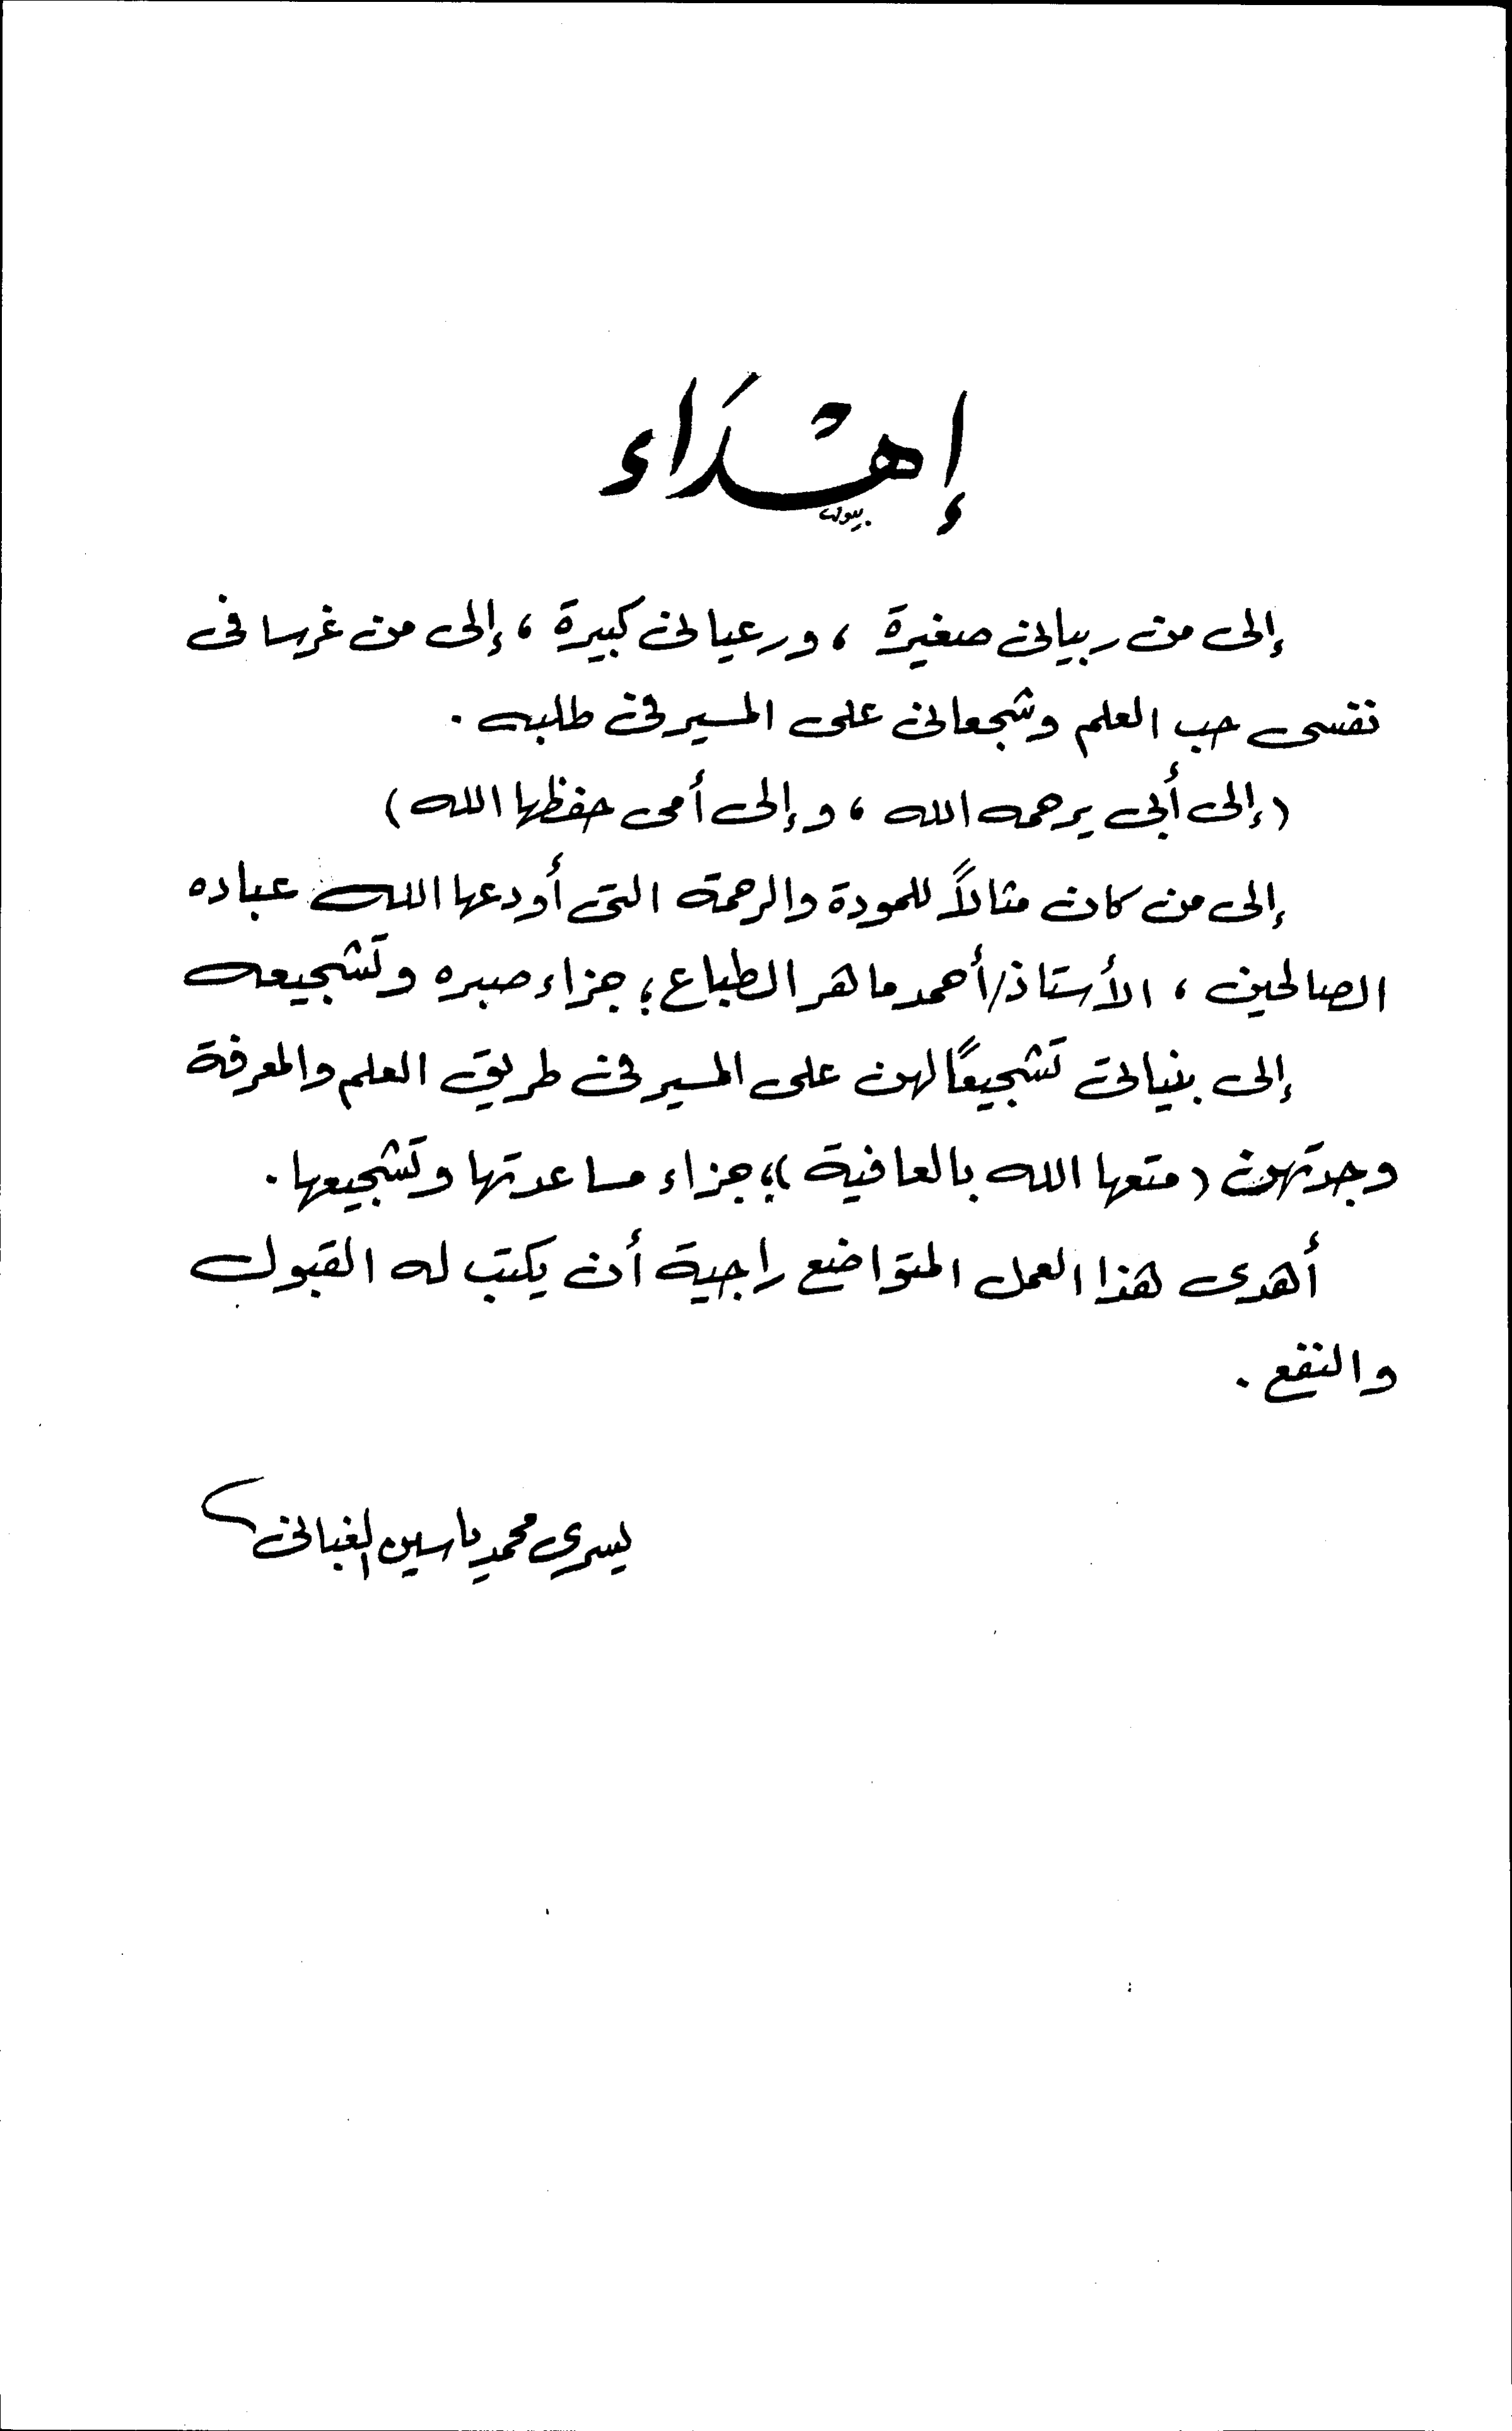 إهْدَاء
إلى من ربيانى صغيرة ، ورعيانى كبيرة ، إلى من غرسا فى
نفسى حب العلم وشجعانى على المسير فى طلبه .
(إلى أبى يرحمه الله ، وإلى أمى حفظها الله)
إلى من كان مثالاً للمودة والرحمة التى أودعها الله عباده
الصالحين ، الأستاذ/أحمد ماهر الطباع ؛ جزاء صبره وتشجيعه
إلى بنياتى تشجيعًا لهن على المسير فى طريق العلم والمعرفة
وجدتهن (متعها الله بالعافية) ؛ جزاء مساعدتها وتشجيعها .
أهدى هذا العمل المتواضع راجية أن يكتب له القبول
والنفع .
يسرى محمد ياسين الغبانى